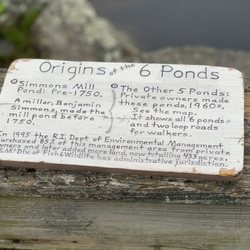 Origins of the 6 Ponds
Simmons Mill
Pond: Pre-1750.
A miller, Benjamin
Simmons, made the
mill pond before
1750.
The Other 5 Ponds:
Private owners made
these ponds, 1960s.
See the map.
It shows all 6 ponds
and two loop roads
for walkers.
In 1995 the R.I. Dept of Environmental Management
purchased 85% of this management area from private
owners and later added more land, now totalling 433 acres.
Div of Fish & Wildlife has administrative jurisdiction.